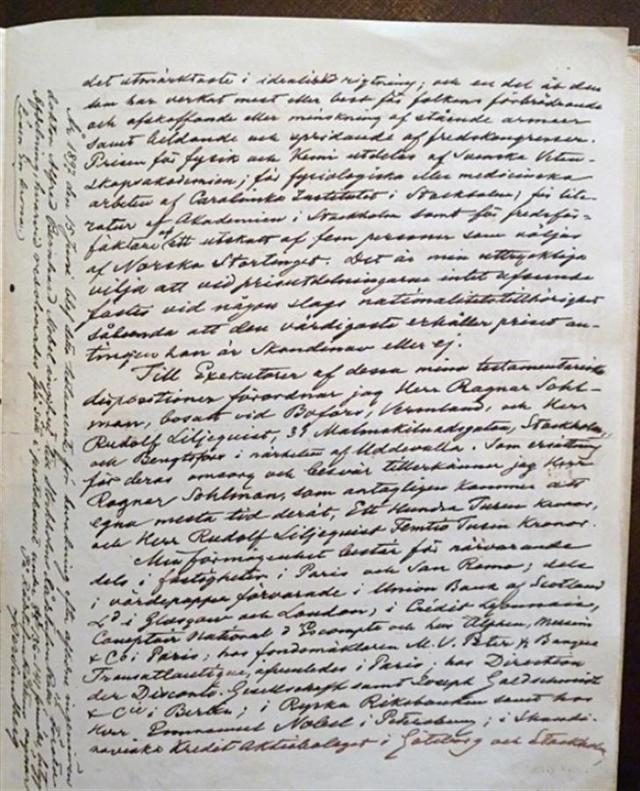 det utmärktaste i idealisk rigtning; och en del åt den
som har verkat mest eller best för folkens förbrödrande
och afskaffande eller minskning af stående armeer
samt bildande och spridande af fredskongresser.
Prisen för fysik och Kemi utdelas af Svenska Veten-
skapsakademien; för fysiologiska eller medicinska
arbeten af Carolinska Institutet i Stockholm; för lite-
ratur af Akademien i Stockholm samt för fredsför-
fäktare af ett utskott af fem personer som väljas
af Norska Stortinget. Det är min uttryckliga
vilja att vid prisutdelningarne intet afseende
fästes vid någon slags nationalitetstillhörighet
sålunda att den värdigaste erhåller priset an-
tingen han är Skandinav eller ej.
Till Exekutorer af dessa mina testamentariska
dispositioner förordnar jag Herr Ragnar Sohl-
man, bosatt vid Bofors, Vermland, och Herr
Rudolf Liljequist, 31 Malmskilnadsgatan, Stockholm,
och Bengtsfors i närheten af Uddevalla. Som ersättning
för deras omsorg och besvär tillerkänner jag Herr
Ragnar Sohlman, som antagligen kommer att
egna mesta tid deråt, Ett Hundra Tusen Kronor,
och Herr Rudolf Liljequist Femtio Tusen Kronor.
Min förmögenhet består för närvarande
dels i fastigheter i Paris och San Remo; dels
i värdepapper förvarade i Union Bank of Scotland
Ld i Glasgow och London; i Crédit Lyonnais,
Comptoir National d'Escompte och hos Alphen, Messin
& Co i Paris; hos fondmäklaren M. V. Peter & Banque
Transatlantique, äfvenledes i Paris; hos Direction
der Disconto Gesellschaft samt Joseph Goldschmidt
& Cie i Berlin; i Ryska Riksbanken samt hos
Herr Emmanuel Nobel i Petersburg; i Skandi-
naviska Kredit Aktiebolaget i Göteborg och Stockholm
År 1897 den 15 Juni blef detta testament för bevakning efter aflidne ingeniören
doktor Alfred Bernhard Nobel